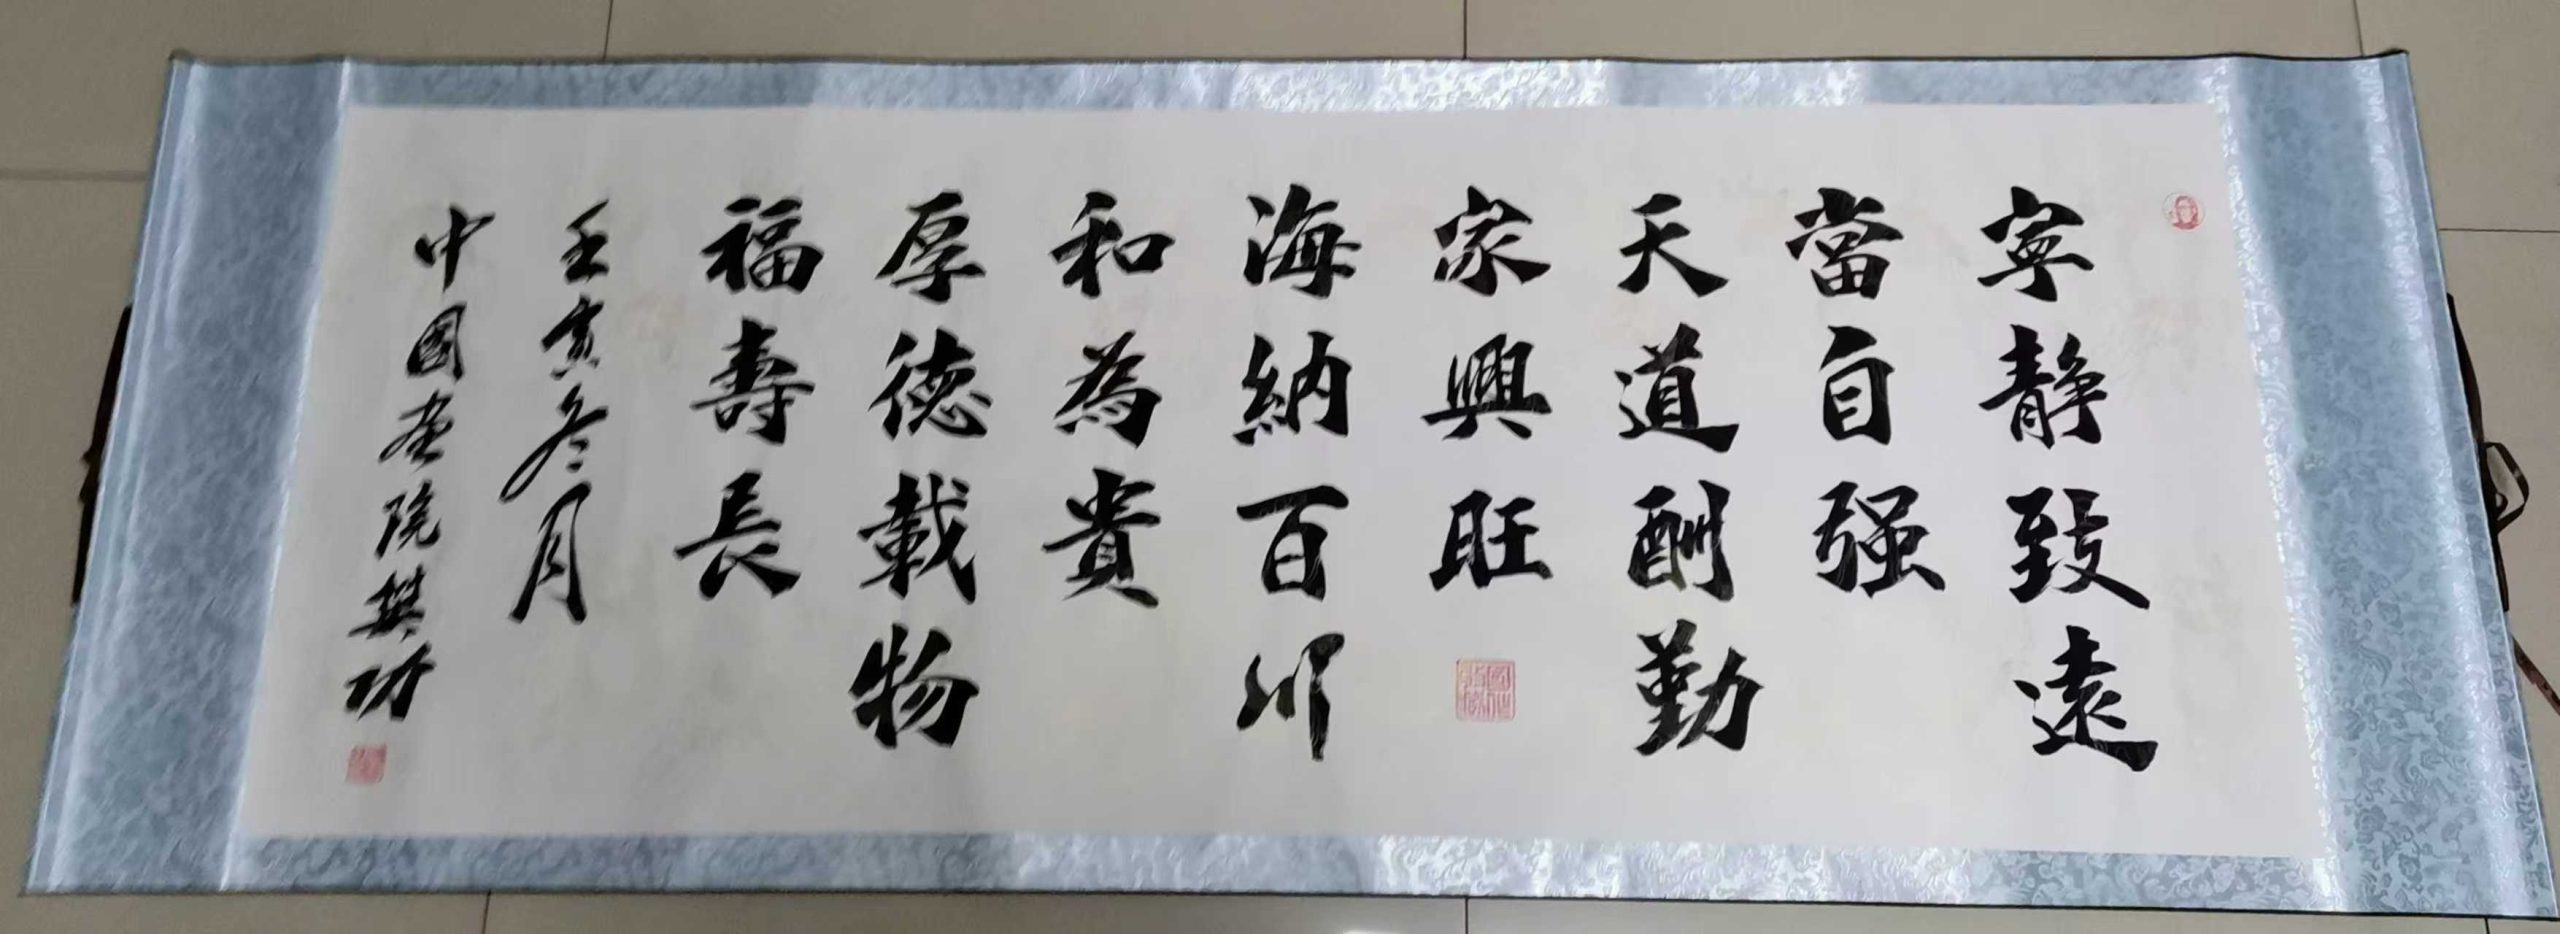 寧静致遠
當自强
天道酬勤
家興旺
海納百川
和為貴
厚德載物
福壽長
壬寅冬月
中國畫院樊功